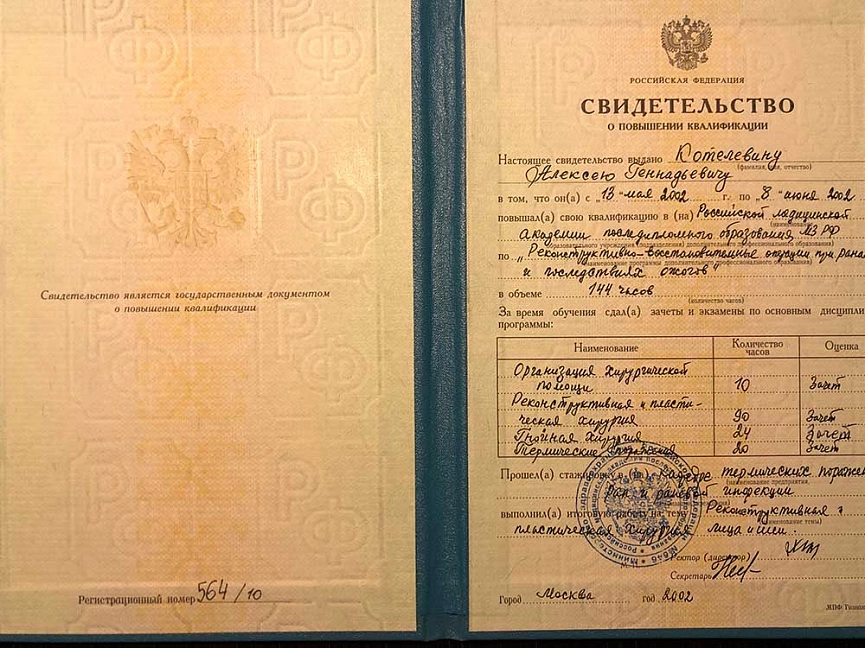 Свидетельство является государственным документом
о повышении квалификации
Регистрационный номер 564/10
РОССИЙСКАЯ ФЕДЕРАЦИЯ
СВИДЕТЕЛЬСТВО
О ПОВЫШЕНИИ КВАЛИФИКАЦИИ
Настоящее свидетельство выдано Котелевину
(фамилия, имя, отчество)
Алексею Геннадьевичу
в том, что он(а) с "13" мая 2002 г. по "8" июня 2002
повышал(а) свою квалификацию в (на) Российской медицинской
Академии последипломного образования МЗ РФ
образовательного учреждения (подразделения) дополнительного профессионального образования)
по "Реконструктивно-восстановительные операции при ранах
(наименование программы дополнительного профессионального образования)
и последствиях ожогов"
в объеме 144 часов
(количество часов)
За время обучения сдал(а) зачеты и экзамены по основным дисципли
программы:
Наименование Количество часов Оценка
Организация хирургической
помощи 10 Зачет
Реконструктивная и пласти-
ческая хирургия 90 Зачет
Гнойная хирургия 24 Зачет
Термические 20 Зачет
Прошел(а) стажировку в (на) Кафедре термических пораже
(наименование предприятия,
Ран и раневой инфекции
выполнил(а) итоговую работу на тему Реконструктивная и
(наименование темы)
пластическая хирургия лица и шеи.
Ректор (директор)
Секретарь
Город Москва год 2002